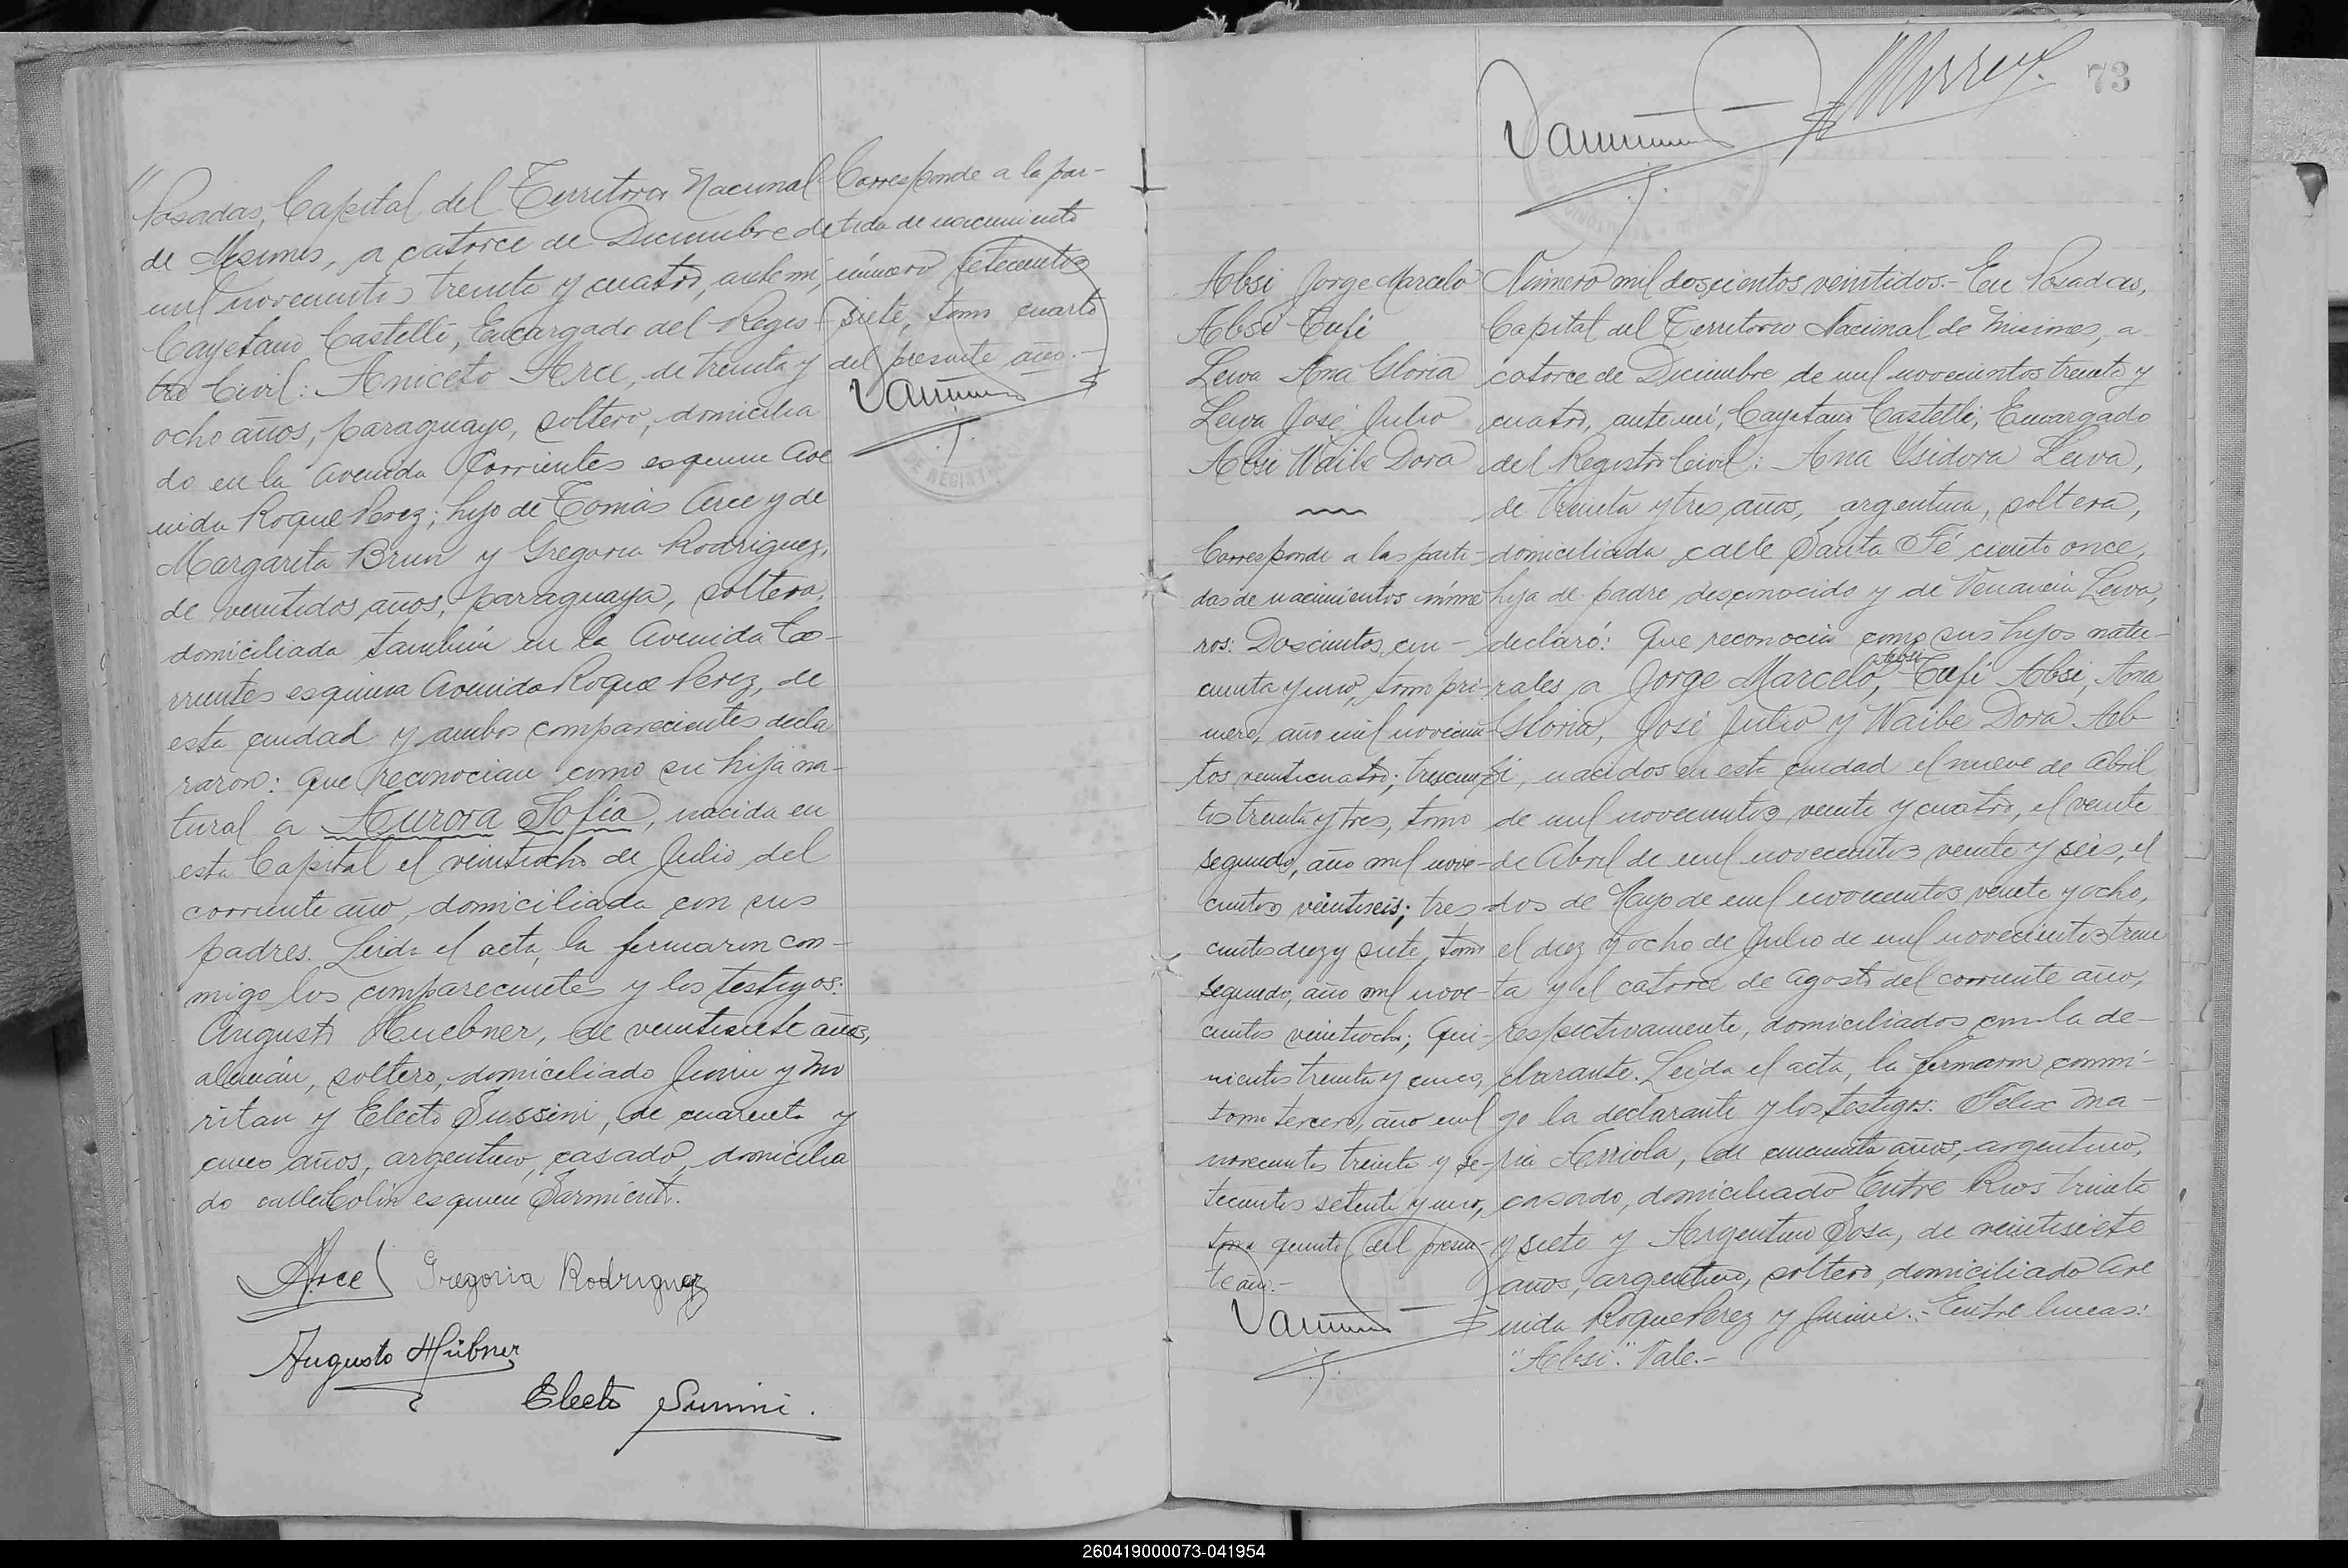 Posadas, Capital del Territorio Nacional
de Misiones, a catorce de Diciembre de
mil novecientos treinta y cuatro, ante mí,
Cayetano Castelli, Encargado del Regis-
tro Civil: Aniceto Arce, de treinta y
ocho años, paraguayo, soltero, domicilia
do en la Avenida Corrientes esquina Ave
nida Roque Perez; hijo de Tomás Arce y de
Margarita Brun y Gregoria Rodriguez,
de veintidos años, paraguaya, soltera,
domiciliada también en la Avenida Co-
rrientes esquina Avenida Roque Perez, de
esta ciudad y ambos comparecientes decla
raron: Que reconocian como su hija na-
tural a Aurora Sofía, nacida en
esta Capital el veintiocho de Julio del
corriente año, domiciliada con sus
padres. Leida el acta, la firmaron con-
migo los comparecientes y los testigos:
Augusto Huebner, de veintisiete años,
alemán, soltero, domiciliado Junin y
y Electo Sussini, de cuarenta y
cinco años, argentino, casado, domicilia
do calle Colón esquina Sarmiento.
Arce Gregoria Rodriguez
Augusto Hübner
Electo Sussini.
Corresponde a la par-
tida de nacimiento
número setecientos
siete, tomo cuarto
del presente año.-
DE REGIST
73
Absi Jorge Marcelo
Absi Tufi
Leiva Ana Gloria
Leiva José Julio
Absi Waibe Dora
Corresponde a las parti-
das de nacimientos núme
ros: Doscientos cin-
cuenta y uno, tomo pri-
mero, año mil novecien-
tos veinticuatro; trescien-
tos treinta y tres, tomo
segundo, año mil nove-
cientos veintiseis; tres-
cientos diez y siete, tomo
segundo, año mil nove-
cientos veintiocho; Qui-
nientos treinta y cinco,
tomo tercero, año mil
novecientos treinta y se-
tecientos setenta y uno,
tomo quinto del presen-
te año.-
Número mil doscientos veintidos.- En Posadas,
Capital del Territorio Nacional de Misiones, a
catorce de Diciembre de mil novecientos treinta y
cuatro, ante mí, Cayetano Castelli, Encargado
del Registro Civil: Ana Isidora Leiva,
de treinta y tres años, argentina, soltera,
domiciliada calle Santa Fé ciento once,
hija de padre desconocido y de Venancia Leiva,
declaró: Que reconocia como sus hijos natu-
Absi
rales a Jorge Marcelo, Tufi Absi, Ana
Gloria, José Julio y Waibe Dora Ab-
si, nacidos en esta ciudad el nueve de Abril
de mil novecientos veinte y cuatro, el veinte
de Abril de mil novecientos veinte y seis, el
dos de Mayo de mil novecientos veinte y ocho,
el diez y ocho de Julio de mil novecientos trein
ta y el catorce de Agosto del corriente año,
respectivamente, domiciliados con la de-
clarante. Leida el acta, la firmaron conmi-
go la declarante y los testigos: Felix Ma-
ria Arriola, de cincuenta años, argentino,
casado, domiciliado Entre Rios treinta
y siete y Argentino Sosa, de veintisiete
años, argentino, soltero, domiciliado Ave
nida Roque Perez y Junin.- Entre lineas:
"Absi". Vale.-
260419000073-041954